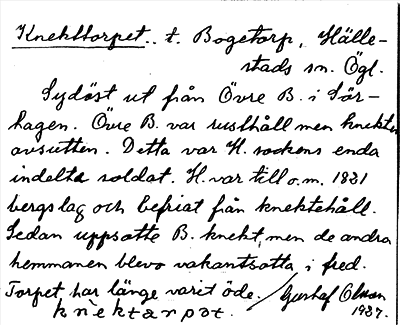 Knekttorpet.. t. Bogetorp, Hälle-
stads sn. Ögl.
Sydöst ut från Övre B. i Sör-
hagen. Övre B. var rusthåll men knekten
avsutten. Detta var H. sockens enda
indelta soldat. H. var till o.m. 1831
bergslag och befriat från knektehåll.
Sedan uppsatte B. knekt, men de andra
hemmanen blevo vakantsatta i fred.
Torpet har länge varit öde. / Gustaf Olsson
knektarpət. 1937.